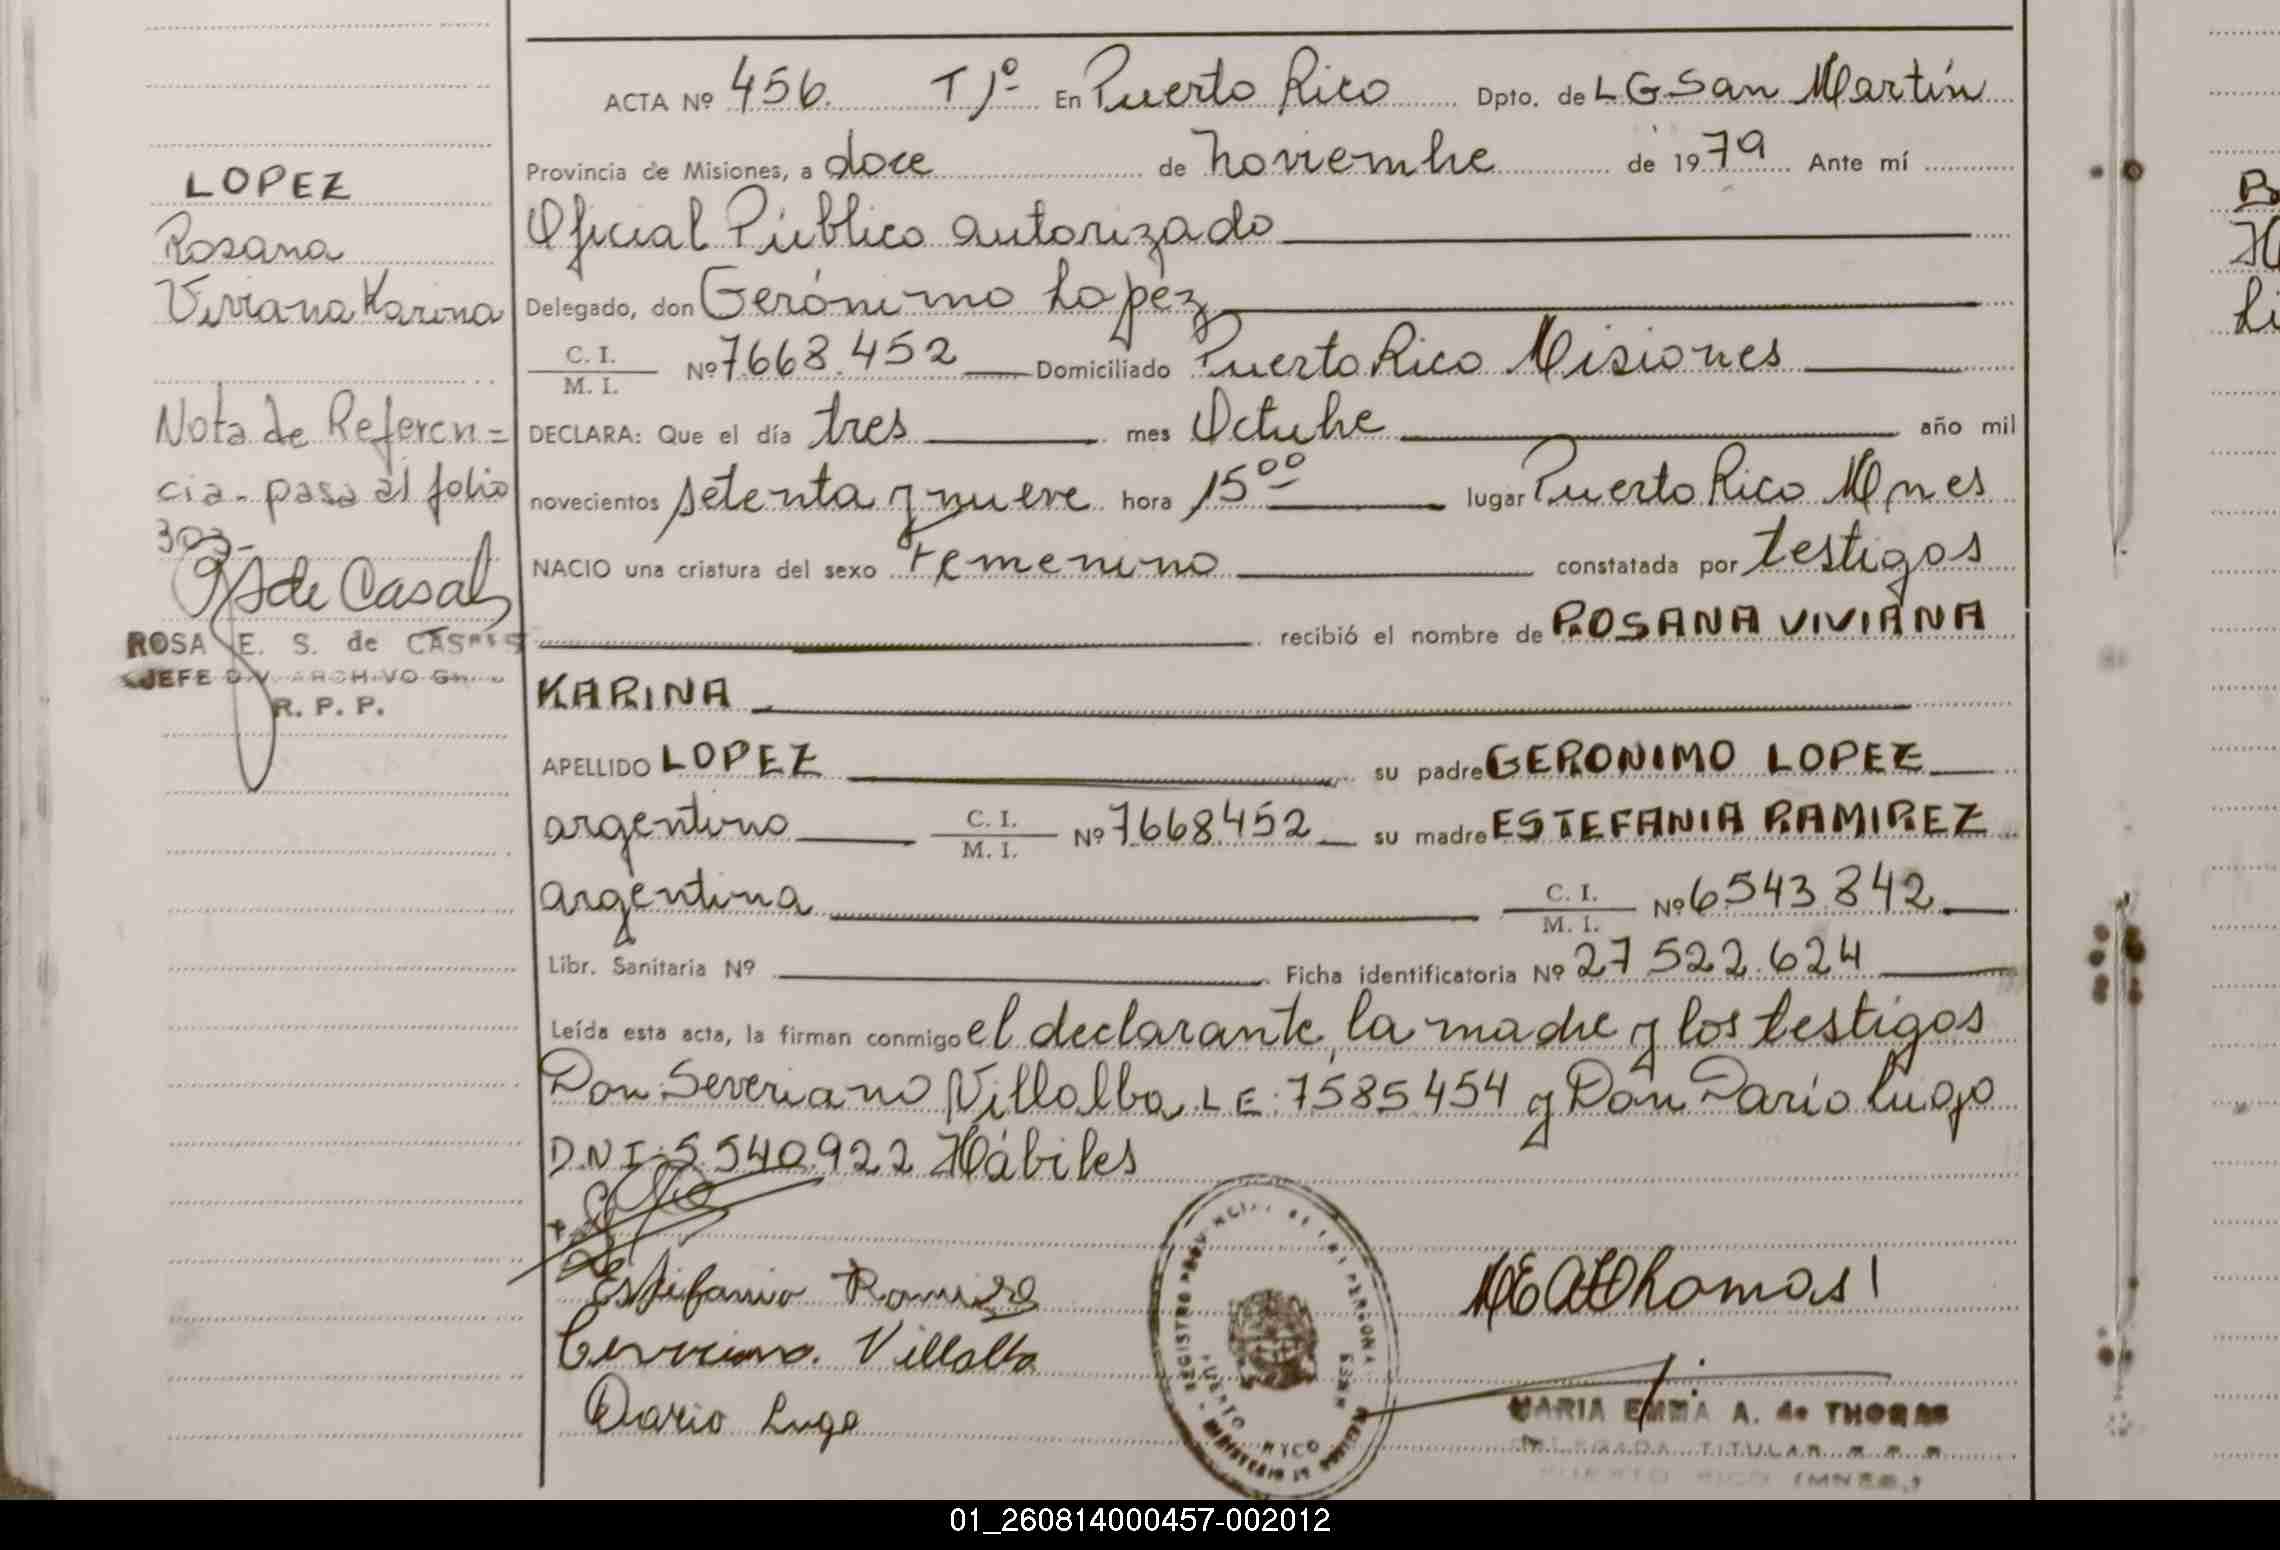 LOPEZ
Rosana
Viviana Karina
Nota de Referen=
cia- pasa al folio
303-
de Casal
ROSA E. S. de CASALS
JEFE DIV. ARCHIVO
R. P. P.
ACTA Nº 456. T 1º En Puerto Rico Dpto. de L G San Martín
Provincia de Misiones, a doce de Noviembre de 1979 Ante mí
Oficial Público autorizado
Delegado, don Gerónimo Lopez
C. I. / M. I. Nº 7.668.452 Domiciliado Puerto Rico Misiones
DECLARA: Que el día tres mes Octubre año mil
novecientos setenta y nueve hora 15 00 lugar Puerto Rico Mnes
NACIO una criatura del sexo Femenino constatada por testigos
recibió el nombre de ROSANA VIVIANA
KARINA
APELLIDO LOPEZ su padre GERONIMO LOPEZ
argentino C. I. / M. I. Nº 7.668.452 su madre ESTEFANIA RAMIREZ
argentina C. I. / M. I. Nº 6.543.842
Libr. Sanitaria Nº Ficha identificatoria Nº 27.522.624
Leída esta acta, la firman conmigo el declarante, la madre y los testigos
Don Severiano Villalba L E: 7585454 y Don Darío Lugo
D.N.I: 5.540.922 Hábiles
Estefania Ramire
Villalba
Dario Lugo
REGISTRO PROVINCIAL DE LAS PERSONAS
PUERTO RICO
MEAdThomas
MARIA EMMA A. de THOMAS
DELEGADA TITULAR R. P. P.
PUERTO RICO (MNES.)
B
Li
01_260814000457-002012